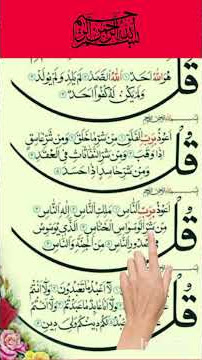 بسم الله الرحمن الرحيم
قل
هُوَ اللّٰهُ اَحَدٌ اَللّٰهُ الصَّمَدُ لَمْ يَلِدْ وَلَمْ يُولَدْ
وَلَمْ يَكُنْ لَهٗ كُفُوًا اَحَدٌ
قل
اَعُوْذُ بِرَبِّ الْفَلَقِ مِنْ شَرِّ مَا خَلَقَ وَمِنْ شَرِّ غَاسِقٍ
اِذَا وَقَبَ وَمِنْ شَرِّ النَّفّٰثٰتِ فِى الْعُقَدِ
وَمِنْ شَرِّ حَاسِدٍ اِذَا حَسَدَ
قل
اَعُوْذُ بِرَبِّ النَّاسِ مَلِكِ النَّاسِ اِلٰهِ النَّاسِ
مِنْ شَرِّ الْوَسْوَاسِ الْخَنَّاسِ الَّذِىْ يُوَسْوِسُ
فِىْ صُدُوْرِ النَّاسِ مِنَ الْجِنَّةِ وَالنَّاسِ
قل
لَا اَعْبُدُ مَا تَعْبُدُوْنَ وَلَا اَنْتُمْ
عَبَدْتُّمْ وَلَا اَنْتُمْ
لَكُمْ دِيْنُكُمْ وَلِىَ دِيْنِ